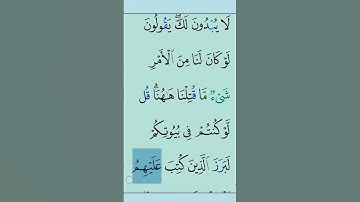 لَا يُبْدُونَ لَكَۖ يَقُولُونَ
لَوْ كَانَ لَنَا مِنَ ٱلْأَمْرِ
شَىْءٌ مَّا قُتِلْنَا هَـٰهُنَاۗ قُل
لَّوْ كُنتُمْ فِى بُيُوتِكُمْ
لَبَرَزَ ٱلَّذِينَ كُتِبَ عَلَيْهِمُ